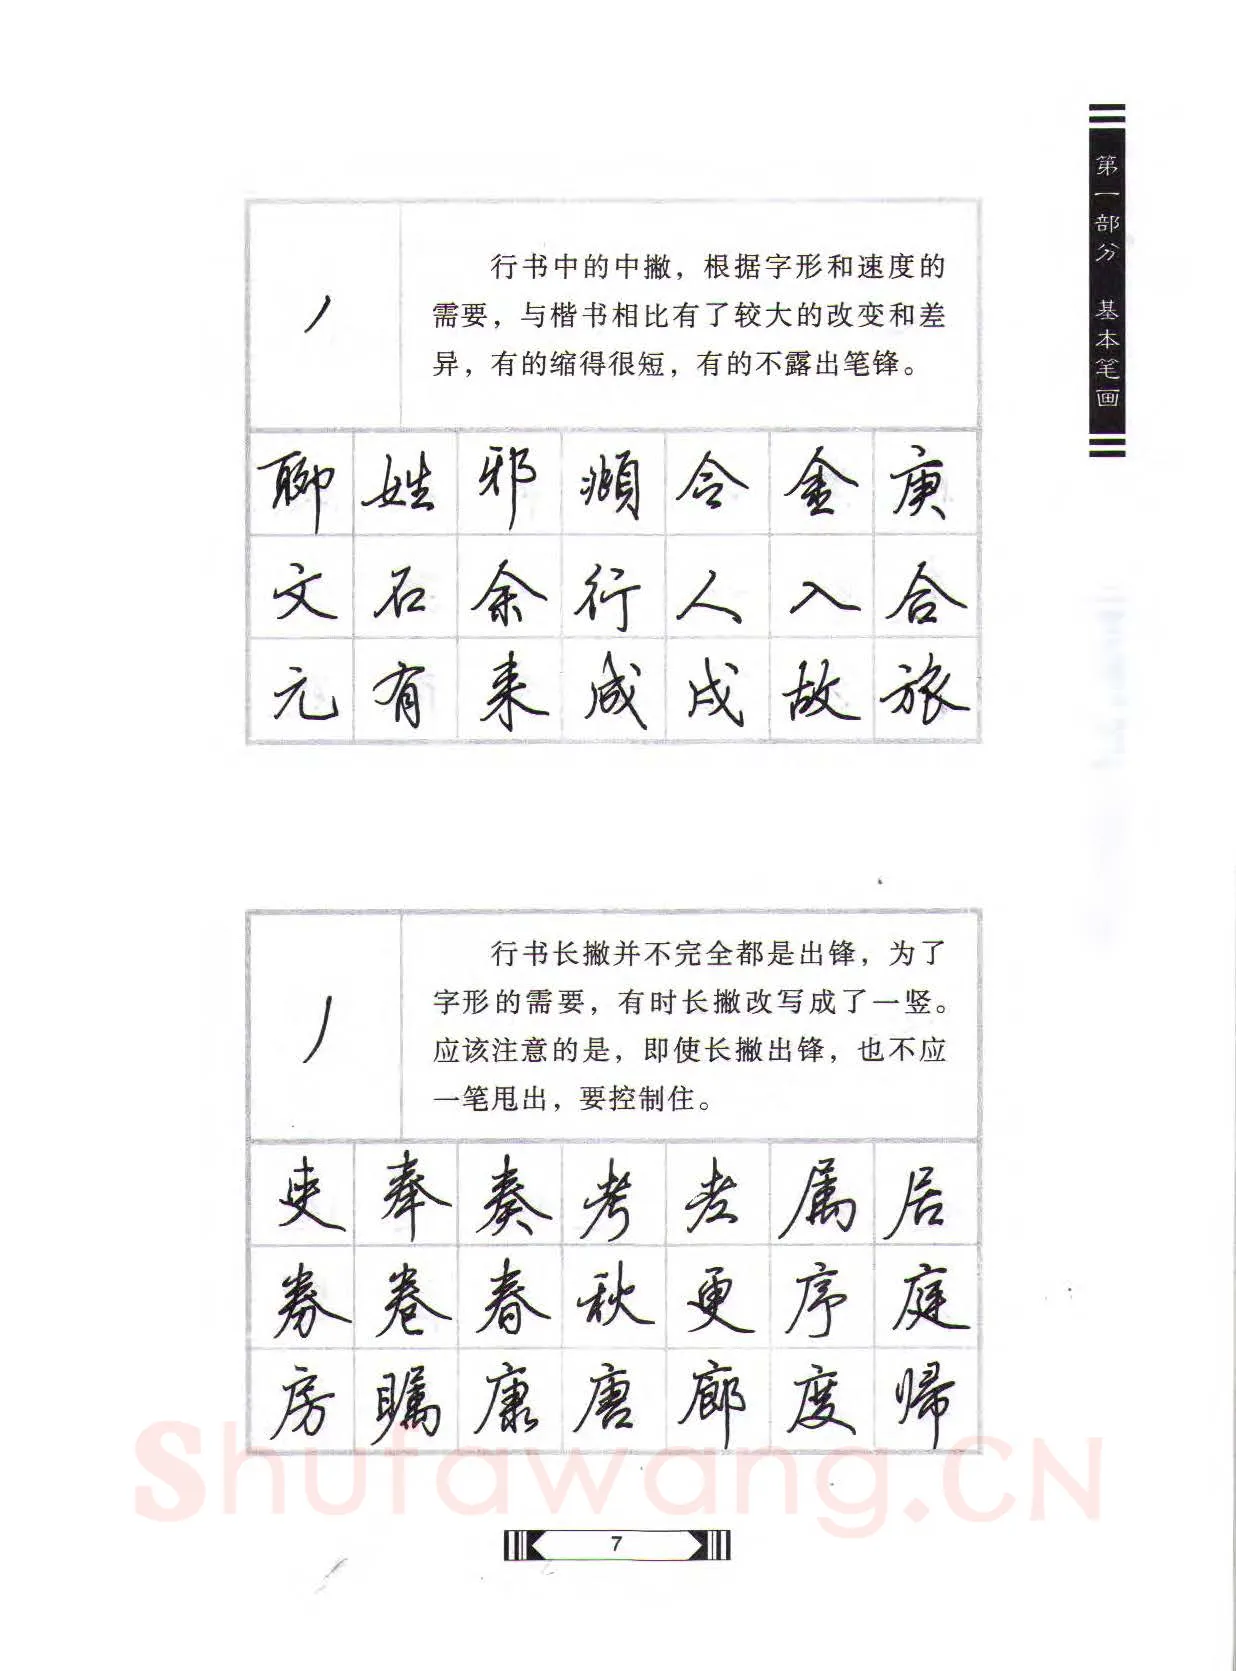 第一部分 基本笔画
行书中的中撇，根据字形和速度的
需要，与楷书相比有了较大的改变和差
异，有的缩得很短，有的不露出笔锋。
聊 姓 邪 濒 含 金 庚
文 石 余 行 人 入 合
元 有 来 咸 戍 故 旅
行书长撇并不完全都是出锋，为了
字形的需要，有时长撇改写成了一竖。
应该注意的是，即使长撇出锋，也不应
一笔甩出，要控制住。
吏 奉 奏 考 老 属 居
券 卷 春 秋 更 序 庭
房 瞩 康 唐 廊 度 帰
Shufawang.CN
7